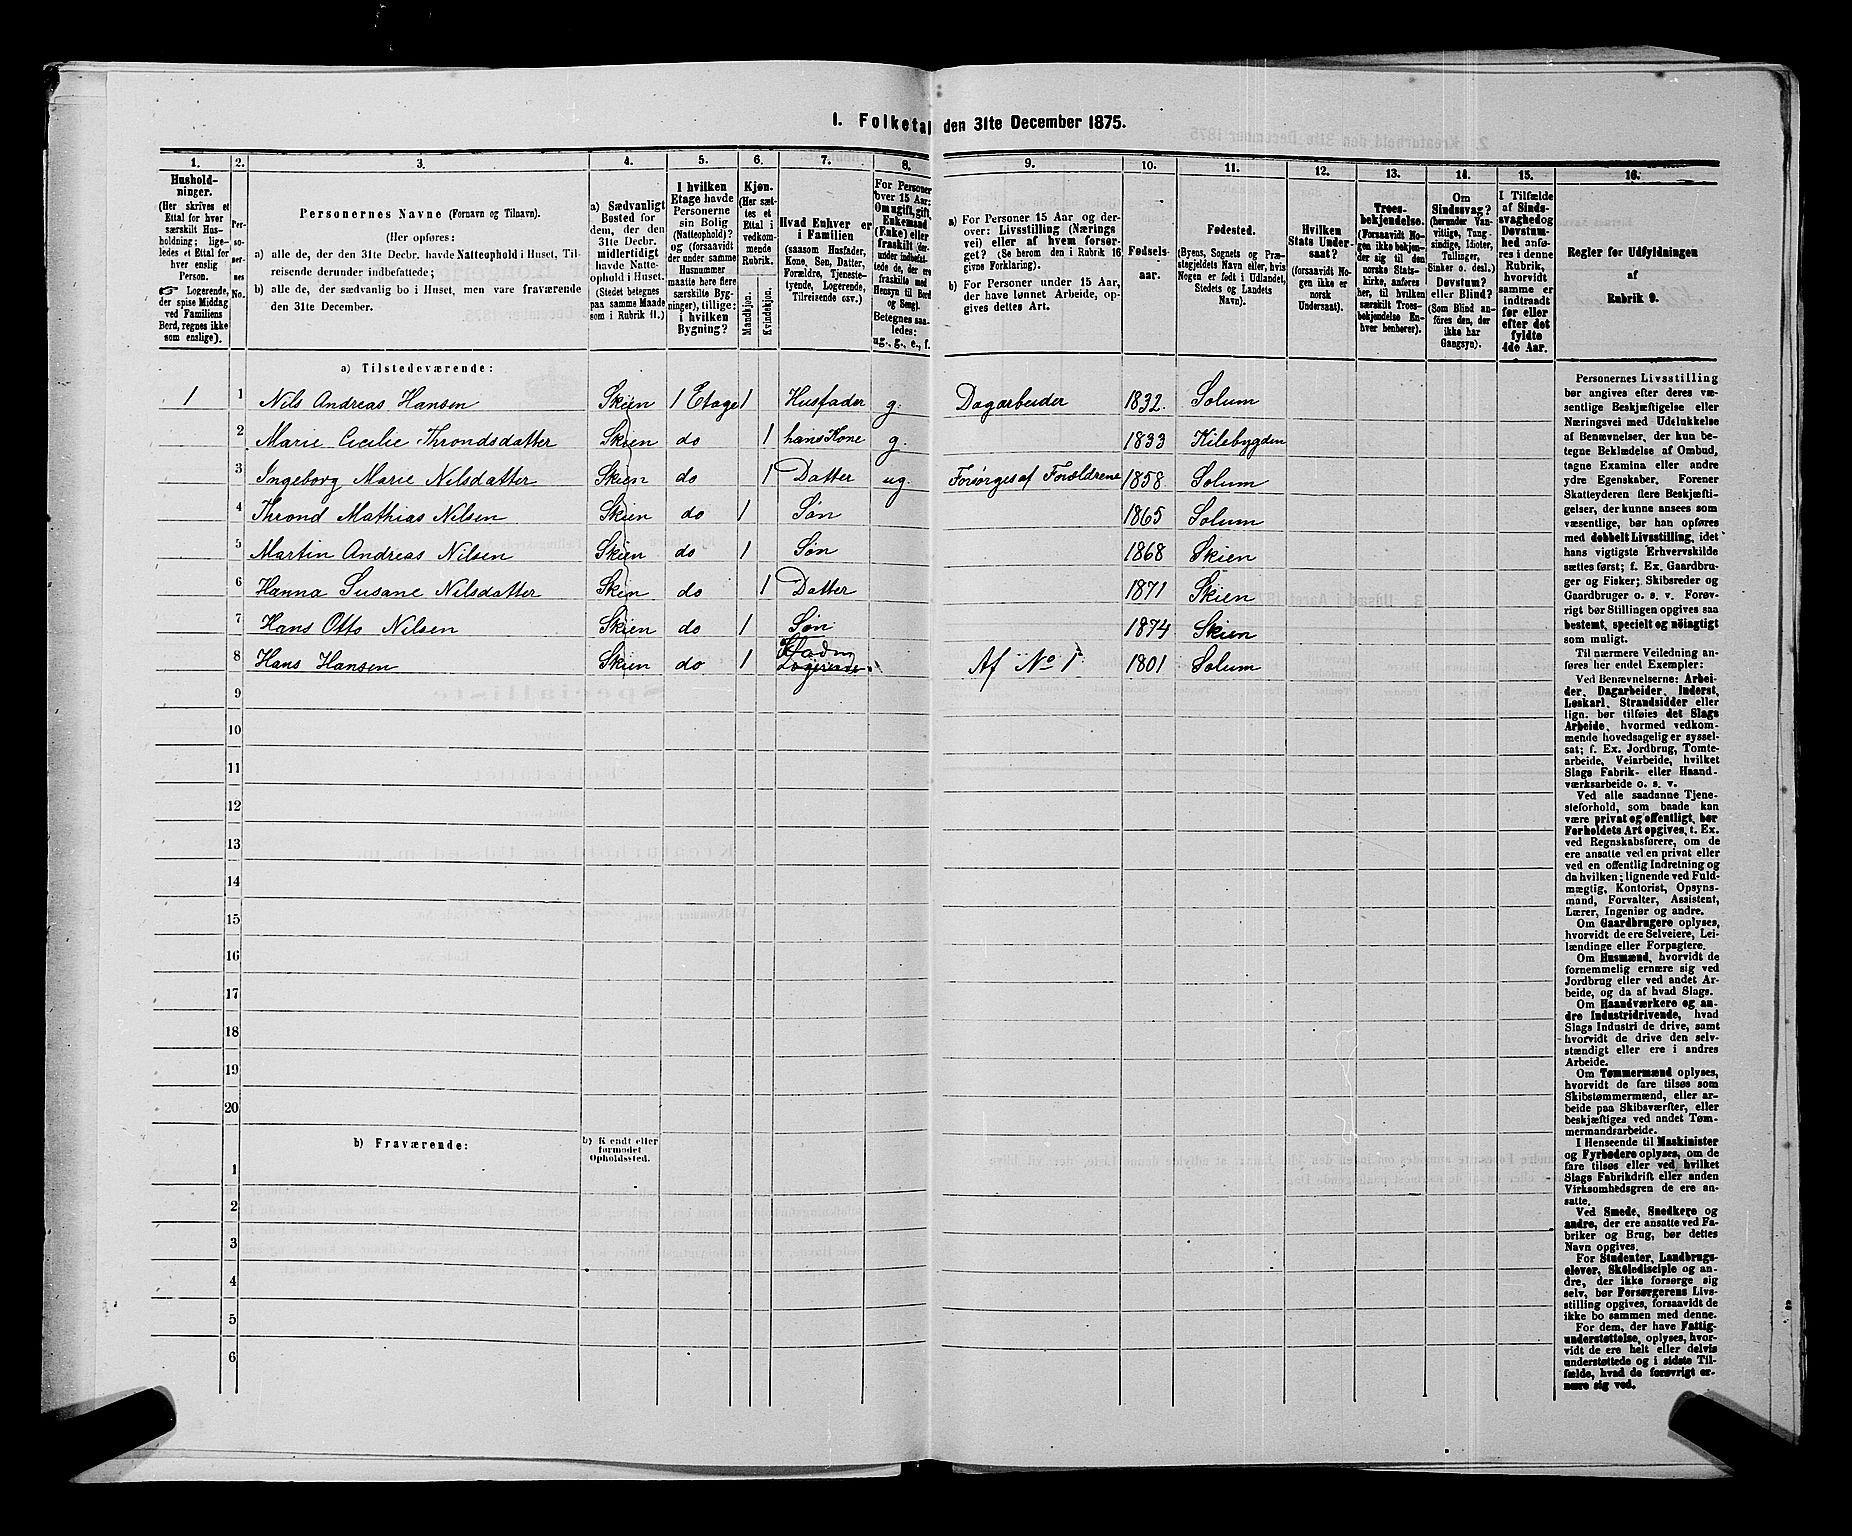 1. Folketal den 31te December 1875.
1. 2. 3. 4. 5. 6. 7. 8. 9. 10. 11. 12. 13. 14. 15. 16.
Hushold-
ninger.
(Her skrives et
Ettal for hver
særskilt Hus-
holdning; lige-
ledes et Ettal for
hver enslig
Person.
☞ Logerende,
der spise Middag
ved Familiens
Bord, regnes ikke
som enslige).
Per-
so-
ner-
nes
No.
Personernes Navne (Fornavn og Tilnavn).
(Her opføres:
a) alle de, der den 31te Decbr. havde Natteophold i Huset, Til-
reisende derunder indbefattede;
b) alle de, der sædvanlig bo i Huset, men vare fraværende
den 31te December.
a) Sædvanligt
Bosted for
dem, der den
31te Decbr.
midlertidigt
havde Natte-
ophold i Huset.
(Stedet betegnes
paa samme Maade
som i Rubrik 11.)
I hvilken
Etage havde
Personerne
sin Bolig
(Natteophold)?
og (forsaavidt
der under samme
Husnummer
maatte høre flere
særskilte Byg-
ninger), tillige:
i hvilken
Bygning?
Kjøn.
(Her sæt-
tes et
Ettal i
vedkom-
mende
Rubrik.
Mandkjøn.
Kvindekjøn.
Hvad Enhver er
i Familien
(saasom Husfader,
Kone, Søn, Datter,
Forældre, Tjeneste-
tyende, Logerende,
Tilreisende osv.)
For Personer
over 15 Aar:
Om ugift, gift,
Enkemand
(Enke) eller
fraskilt (der-
under indbefat-
tede de, der ere
fraskilte med
Hensyn til Bord
og Seng).
Betegnes saa-
ledes:
ug., g., e., f.
a) For Personer 15 Aar og der-
over: Livsstilling (Nærings
vei) eller af hvem forsør-
get? (Se herom den i Rubrik 16
givne Forklaring).
b) For Personer under 15 Aar,
der have lønnet Arbeide, op-
gives dettes Art.
Fødsels-
aar.
Fødested.
(Byens, Sognets og Præ-
stegjeldets Navn eller, hvis
Nogen er født i Udlandet,
Stedets og Landets
Navn).
Hvilken
Stats Under-
saat?
(forsaavidt No-
gen ikke er
norsk
Undersaat).
Troes-
bekjendelse.
(Forsaavidt No-
gen ikke bekjen-
der sig til den
norske Stats-
kirke, anføres
her, til hvilken
særskilt Troes-
bekjendelse En-
hver henhører).
Om
Sindssvag?
(herunder Van-
vittige, Tung-
sindige, Idioter,
Tullinger,
Sinker o. desl.)
Døvstum?
eller Blind?
(Som Blind an-
føres den, der
ikke har
Gangsyn).
I Tilfælde
af Sinds-
svaghed og
Døvstum-
hed anfø-
res i denne
Rubrik,
hvorvidt
samme er
indtraadt
før eller
efter det
fyldte
4de Aar.
Regler for Udfyldningen
af
Rubrik 9.
a) Tilstedeværende:
1 1 Nils Andreas Hansen Skien 1 Etage 1 Husfader g. Dagarbeider 1832. Solum
2 Marie Cicilie Throndsdatter Skien do 1 hans Kone g. 1833 Kilebygden
3 Ingeborg Marie Nilsdatter Skien do 1 Datter ug. Forsørges af Forældrene 1858 Solum
4 Thrond Mathias Nilsen Skien do 1 Søn 1865 Solum
5 Martin Andreas Nilsen Skien do 1 Søn 1868 Skien
6 Hanna Susane Nilsdatter Skien do 1 Datter 1871 Skien
7 Hans Otto Nilsen Skien do 1 Søn 1874 Skien
8 Hans Hansen Skien do 1 Logerende Af No 1 1801 Solum
9
10
11
12
13
14
15
16
17
18
19
20
b) Fraværende:
b) Kjendt eller
formodet
Opholdssted.
1
2
3
4
5
6
Personernes Livsstilling
bør angives efter deres væ-
sentlige Beskjæftigelse eller
Næringsvei med Udelukkelse
af Benævnelser, der kun be-
tegne Beklædelse af Ombud,
tagne Examina eller andre
ydre Egenskaber. Forener
Skatteyderen flere Beskjæfti-
gelser, der kunne ansees som
væsentlige, bør han opføres
med dobbelt Livsstilling, idet
hans vigtigste Erhvervskilde
sættes først; f. Ex. Gaardbru-
ger og Fisker; Skibsreder og
Gaardbruger o. s. v. Forøv-
rigt bør Stillingen opgives saa
bestemt, specielt og nöiagtigt
som muligt.
Til nærmere Veiledning an-
føres her endel Exempler:
Ved Benævnelserne: Arbei-
der, Dagarbeider, Inderst,
Løskarl, Strandsidder eller
lign. bør tilføies det Slags
Arbeide, hvormed vedkom-
mende hovedsagelig er syssel-
sat; f. Ex. Jordbrug, Tomte-
arbeide, Veiarbeide, hvilket
Slags Fabrik- eller Haand-
værksarbeide o. s. v.
Ved alle saadanne Tjene-
steforhold, som baade kan
være privat og offentligt, bør
Forholdets Art opgives, t. Ex.
ved Regnskabsførere, om de
ere ansatte ved en privat eller
ved en offentlig Indretning og
da hvilken; lignende ved Fuld-
mægtig, Kontorist, Opsyns-
mand, Forvalter, Assistent,
Lærer, Ingeniør og andre.
Om Gaardbrugere oplyses,
hvorvidt de ere Selveiere, Lei-
lændinge eller Forpagtere.
Om Husmænd, hvorvidt de
fornemmelig ernære sig ved
Jordbrug eller ved andet Ar-
beide, og da af hvad Slags.
Om Haandværkere og an-
dre Industridrivende, hvad
Slags Industri de drive, samt
hvorvidt de drive den selv-
stændigt eller ere i andres
Arbeide.
Om Tømmermænd oplyses,
hvorvidt de fare tilsøs som
Skibstømmermænd, eller ar-
beide paa Skibsværfter, eller
beskjæftiges ved andet Tøm-
mermandsarbeide.
I Henseende til Maskinister
og Fyrbødere oplyses, om de
fare tilsøs eller ved hvilket
Slags Fabrikdrift eller anden
Virksomhedsgren de ere an-
satte.
Ved Smede, Snedkere og
andre, der ere ansatte ved Fa-
briker og Brug, bør dettes
Navn opgives.
For Studenter, Landbrugs-
elever, Skoledisciple og an-
dre, der ikke forsørge sig
selv, bør Forsørgerens Livs-
stilling opgives, forsaavidt de
ikke bo sammen med denne.
For dem, der have Fattig-
understøttelse, oplyses, hvor-
vidt de ere helt eller delvis
understøttede og i sidste Til-
fælde, hvad de forøvrigt er-
nære sig ved.